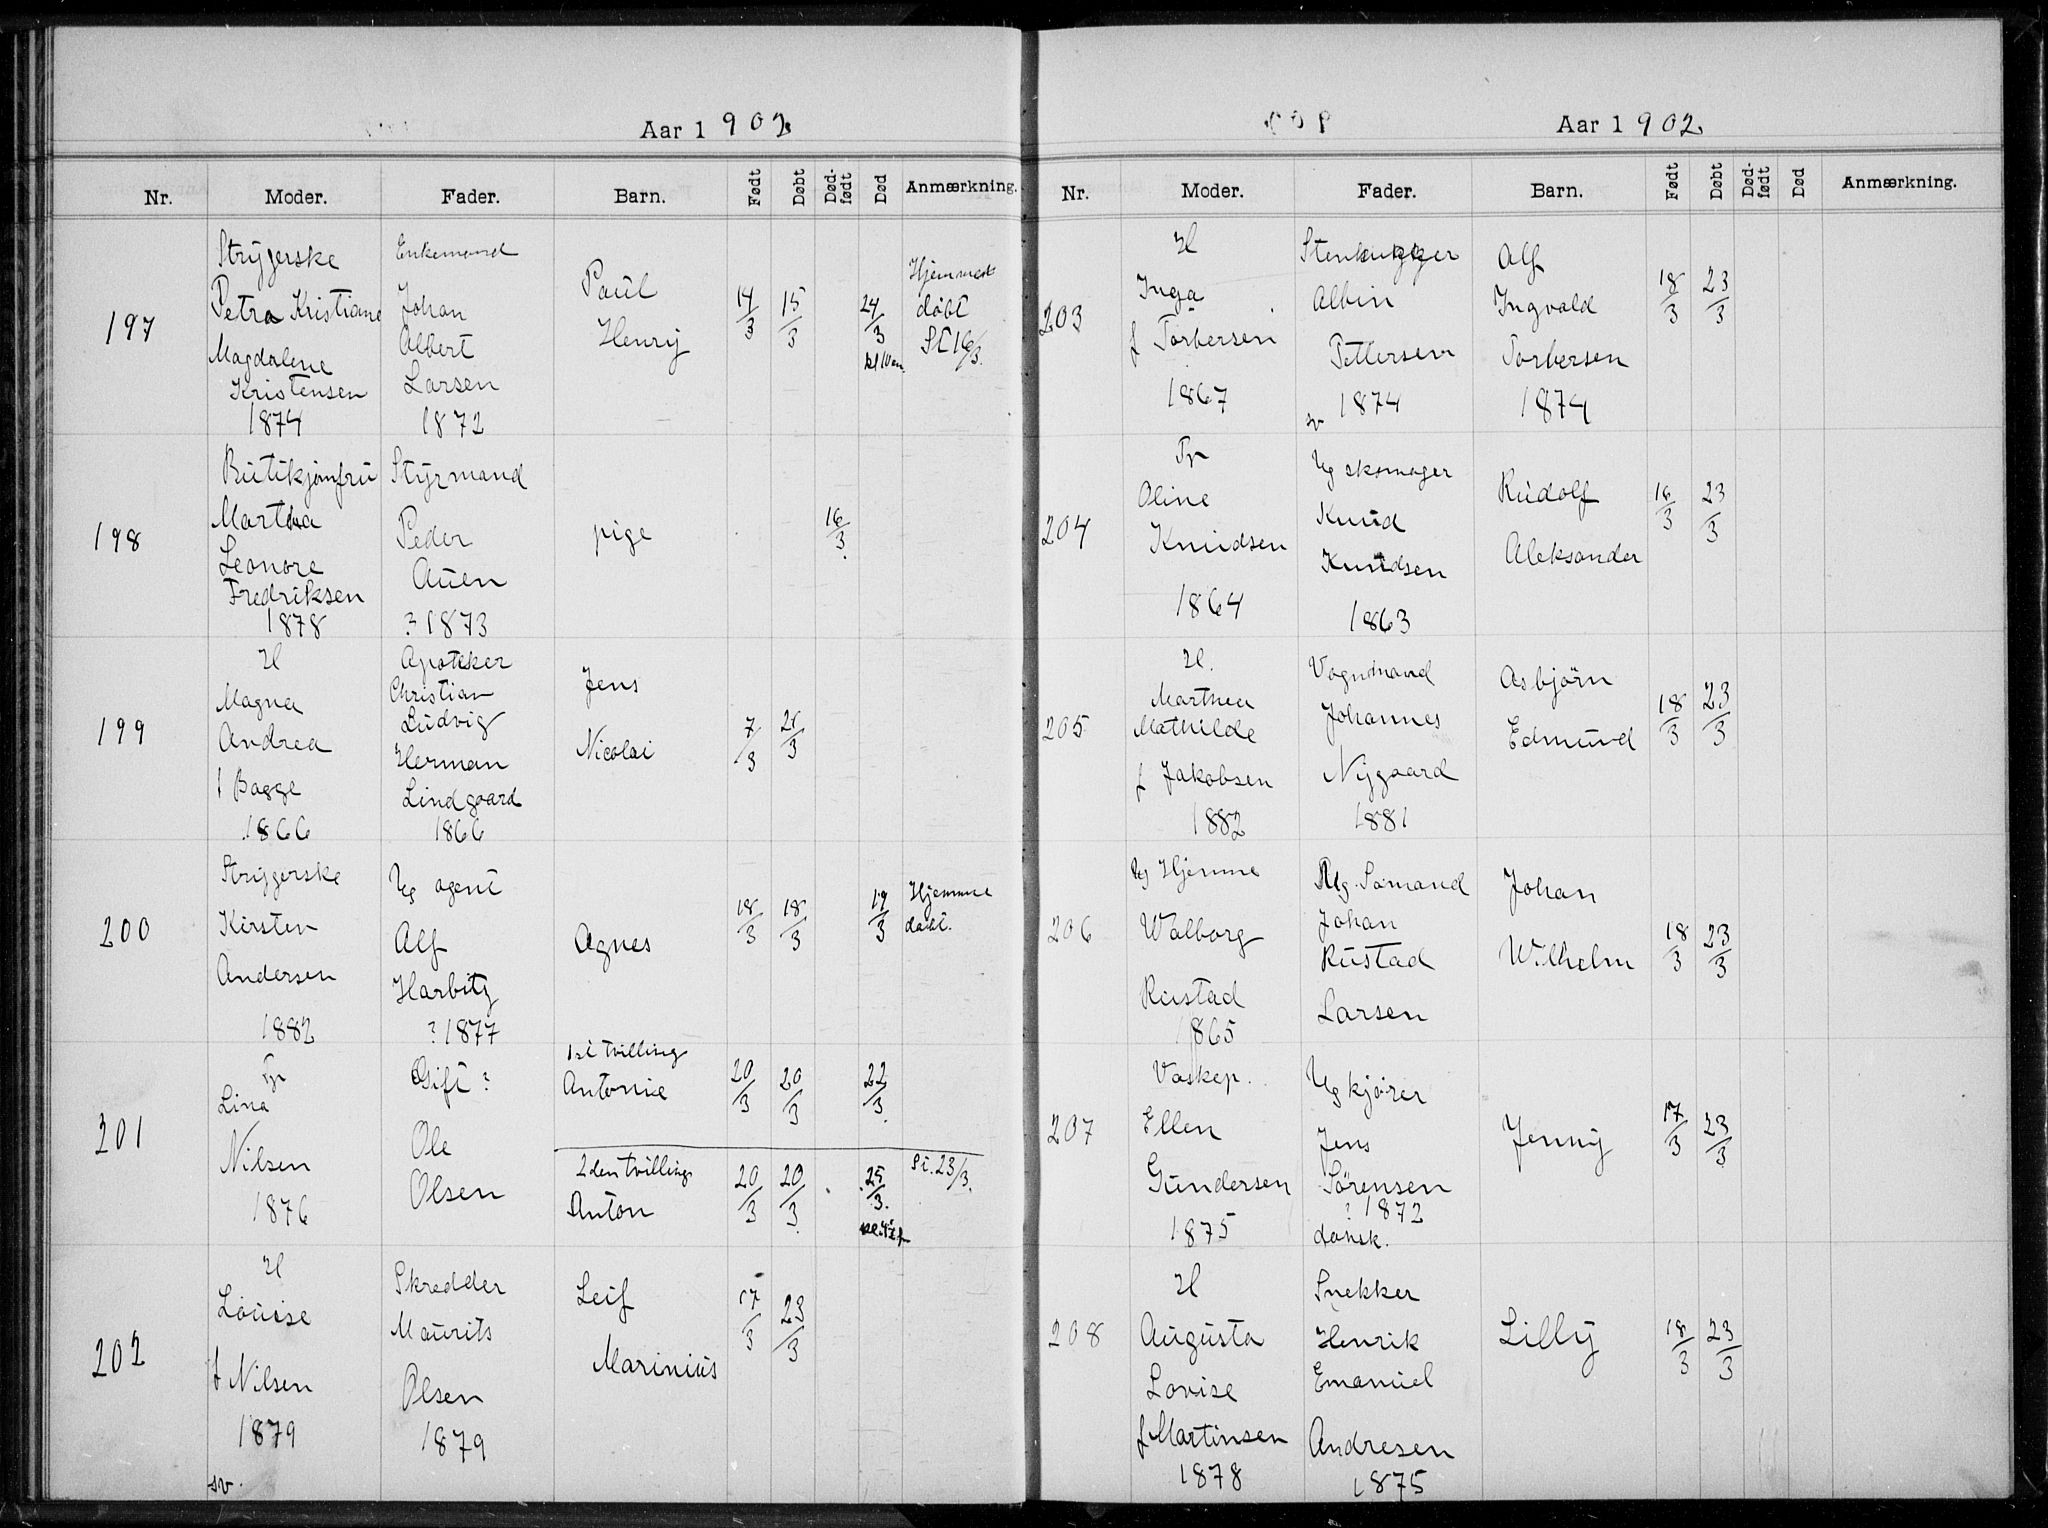 Aar 1902.
Nr. Moder. Fader. Barn. Født Døbt Død-født Død Anmærkning.
197
Strygerske
Petra Kristiane
Magdalene
Kristensen
1874
Enkemand
Johan
Albert
Larsen
1872
Paul
Henry
14/3 15/3 24/3
Hjemmed
døbt
St 16/3.
198
Butikjomfru
Martha
Leonore
Fredriksen
1878
Styrmand
Peder
Auen
? 1873
pige
16/3.
199
H
Magna
Andrea
f Bagge
1866
Apoteker
Christian
Ludvig
Herman
Lindgaard
1866
Jens
Nicolai
7/3 21/3
200
Strygerske
Kirsten
Andersen
1882
Ug agent
Alf
Harbitz
? 1877
Agnes
18/3 18/3 19/3
Hjemme
døbt.
201
Tj
Lina
Nilsen
1876
Gift?
Ole
Olsen
1st tvilling
Antonie
20/3 20/3 22/3.
2den tvilling
Anton
20/3 20/3. 25/3.
St. 23/3.
202
H
Louise
f Nilsen
1879
sv.
Skredder
Maurits
Olsen
1879
Leif
Marinius
17/3 23/3
Aar 1902.
Nr. Moder. Fader. Barn. Født Døbt Død-født Død Anmærkning.
203
H
Inga
f Torbersen
1867
Stenhugger
Albin
Pettersen
sv 1874
Alf
Ingvald
Torbersen
1874
18/3 23/3
204
Oline
Knudsen
1864
Ug skomager
Knud
Knudsen
1863
Rudolf
Aleksander
16/3 23/3
205
H.
Marthea
Mathilde
f Jakobsen
1882
Vognmand
Johannes
Nygaard
1881
Asbjørn
Edmund
18/3 23/3
206
Hjemme
Walborg
Rustad
1865
Ug. Sømand
Johan
Rustad
Larsen
Johan
Wilhelm
18/3 23/3
207
Vaskep.
Ellen
Gundersen
1875
Ug kjører
Jens
Sørensen
? 1872
dansk.
Jenny
17/3 23/3
208
H
Augusta
Lovise
f Martinsen
1878
Snekker
Henrik
Emanuel
Andresen
1875
Lilly
18/3 23/3